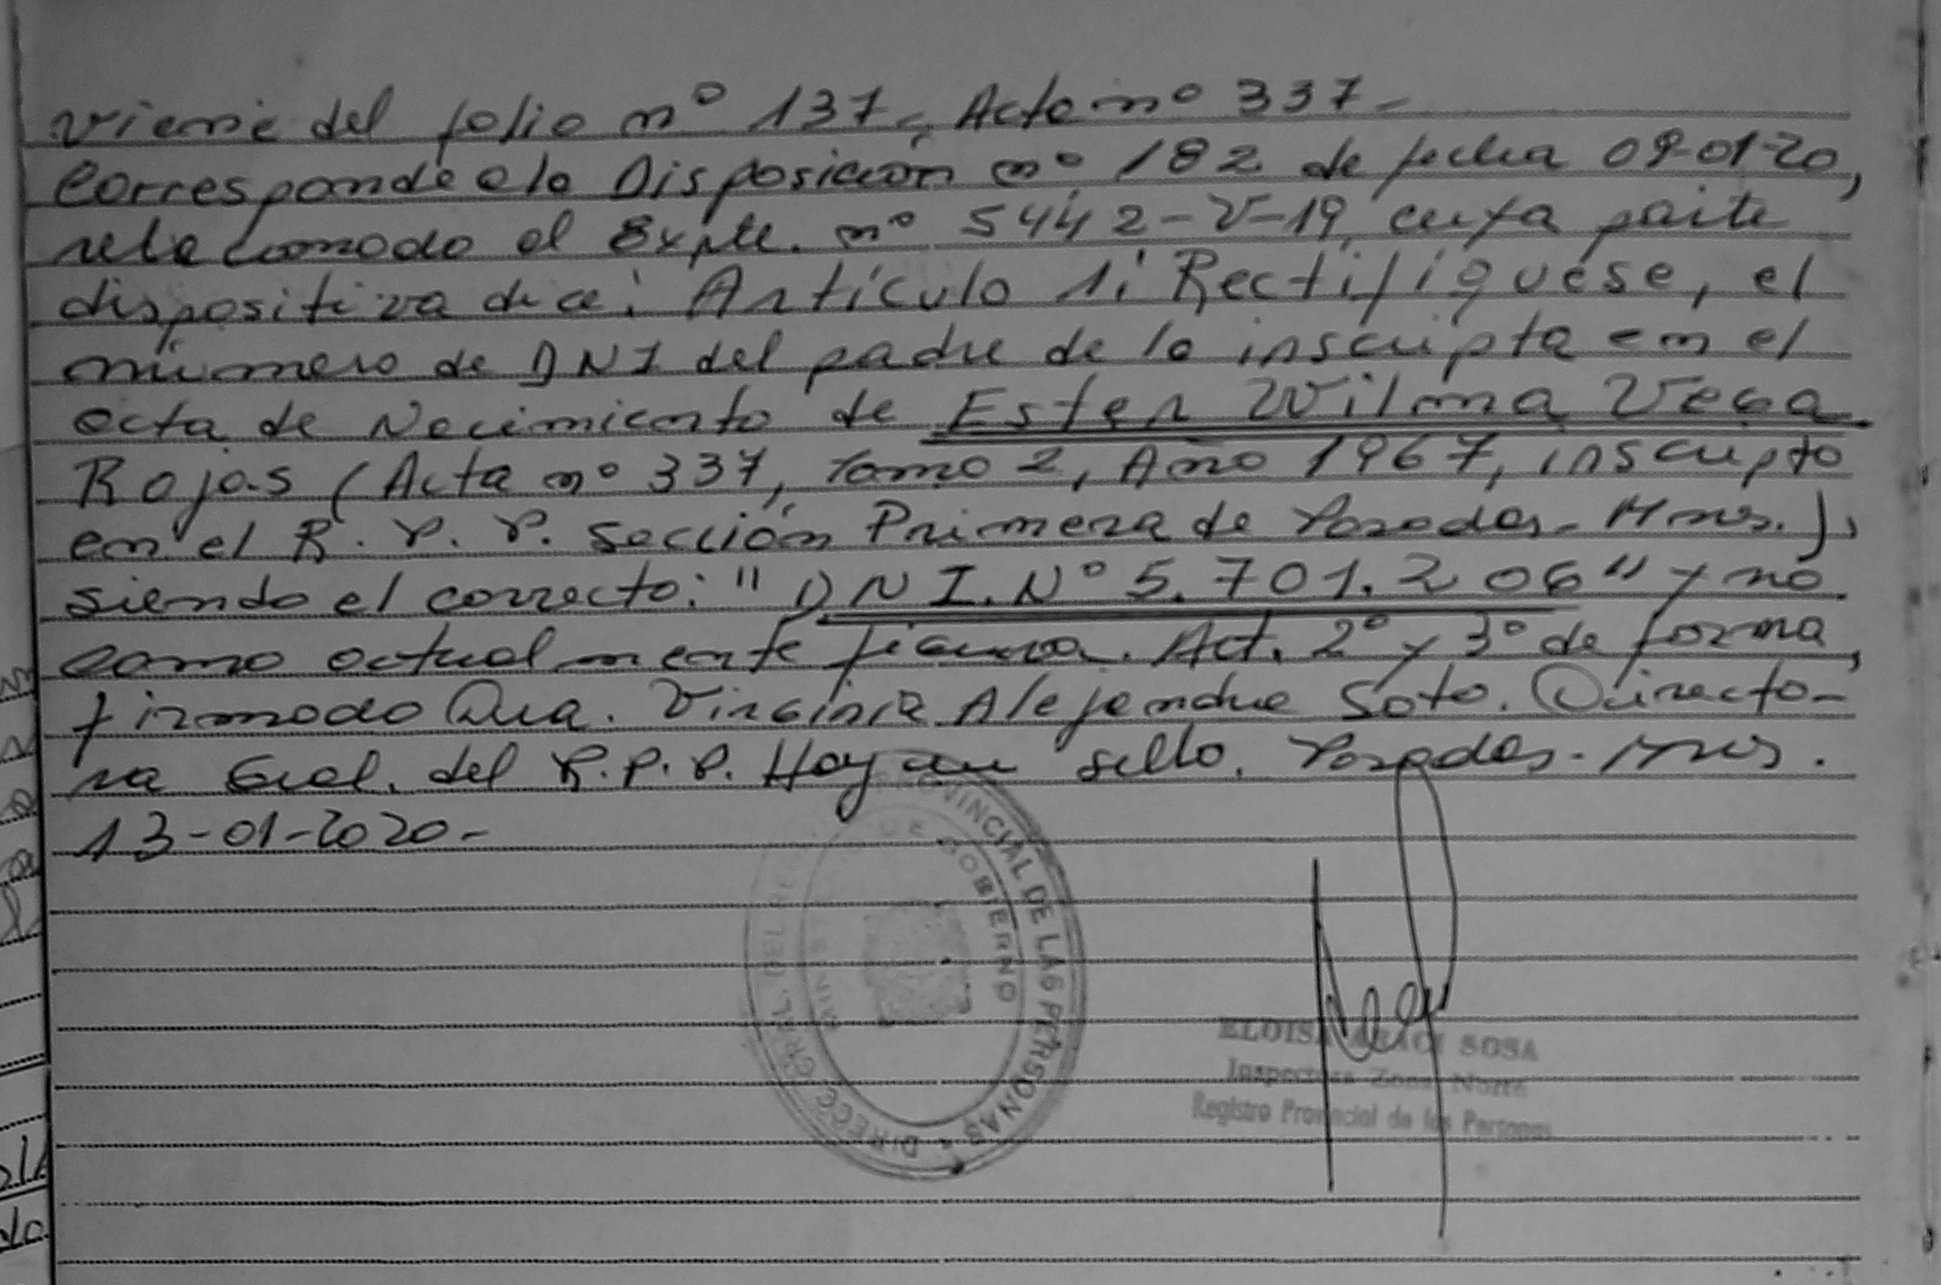 Viene del folio nº 137, Acta nº 337-
Corresponde a la Disposición nº 182 de fecha 09-01-20,
relacionado al Expte. nº 5442-V-19, cuya parte
dispositiva dice: Artículo 1: Rectifíquese, el
número de DNI del padre de la inscripta en el
acta de Nacimiento de Ester Wilma Vega
Rojas (Acta nº 337, Tomo 2, Año 1967, inscripto
en el R. P. P. Sección Primera de Posadas - Mnes.),
siendo el correcto: "DNI. Nº 5.701.206" y no
como actualmente figura. Art. 2º y 3º de forma,
firmado Dra. Virginia Alejandra Soto. Directo-
ra Gral. del R.P.P. Hay un sello. Posadas - Mnes.
13-01-2020-
DIRECC. GRAL. DEL REG. PROVINCIAL DE LAS PERSONAS
MINISTERIO DE GOBIERNO
ELOISA SOSA
Inspectora Zona Norte
Registro Provincial de las Personas